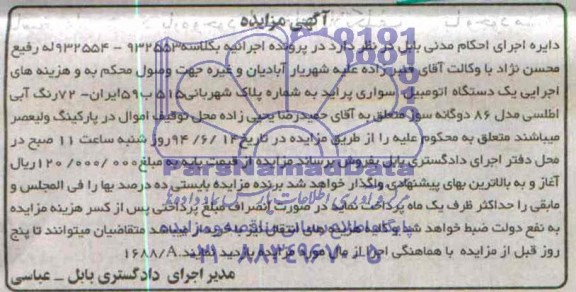 آگهی مزایده
دایره اجرای احکام مدنی بابل در نظر دارد در پرونده اجرائیه بکلاسه ۹۳۲۵۵۳ - ۹۳۲۵۵۴ له رفیع
محسن نژاد با وکالت آقای زاده علیه شهریار آبادیان و غیره جهت وصول محکوم به و هزینه های
اجرایی یک دستگاه اتومبیل سواری پراید به شماره پلاک شهربانی ۵۱۵ ب ۵۹ ایران - ۷۲ رنگ آبی
اطلسی مدل ۸۶ دوگانه سوز متعلق به آقای حمیدرضا یحیی زاده محل توقیف اموال در پارکینگ ولیعصر
میباشند متعلق به محکوم علیه را از طریق مزایده در تاریخ ۹۴/۶/۱۴ روز شنبه ساعت ۱۱ صبح در
محل دفتر اجرای دادگستری بابل بفروش برساند مزایده از قیمت پایه به مبلغ ۱۲۰/۰۰۰/۰۰۰ ریال
آغاز و به بالاترین بهای پیشنهادی واگذار خواهد شد برنده مزایده بایستی ده درصد بها را فی المجلس و
مابقی را حداکثر ظرف یک ماه پرداخت نماید در صورت انصراف مبلغ پرداختی پس از کسر هزینه مزایده
به نفع دولت ضبط خواهد شد و کلیه هزینه های انتقال نیز به عهده متقاضیان میتوانند تا پنج
روز قبل از مزایده با هماهنگی اجرا از مال مورد مزایده بازدید نمایند. ۱۶۸۸/A
مدیر اجرای دادگستری بابل - عباسی
ParsNamadData
۰۲۱-۸۸۳۴۹۶۷۰-۵